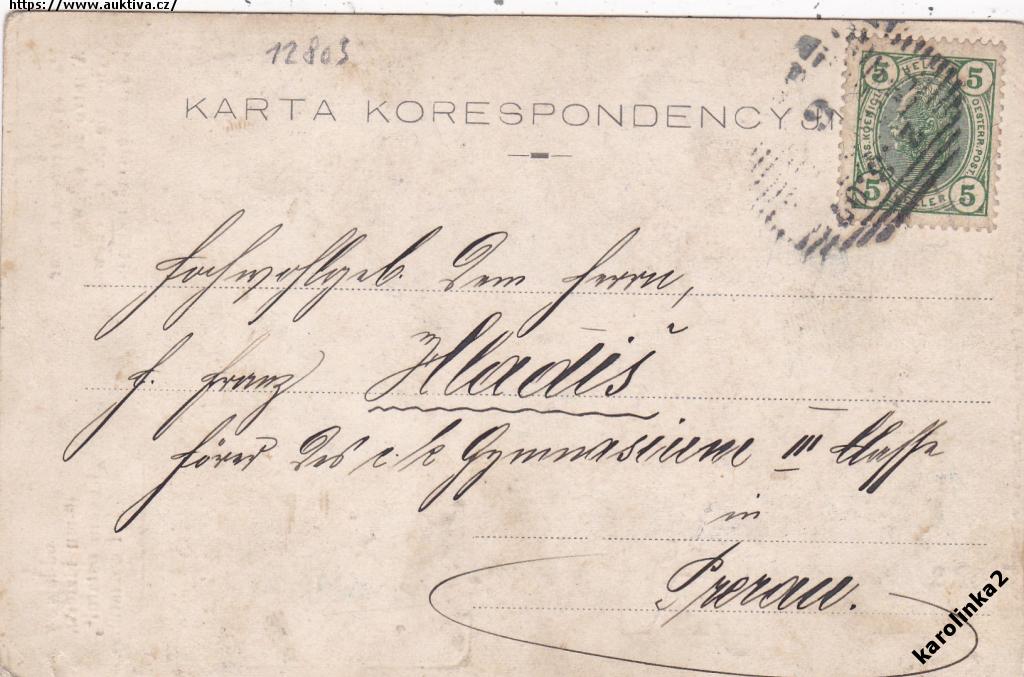 https://www.auktiva.cz/
12803
KARTA KORESPONDENCYJN
5 HELLER 5
KAIS. KOENIGL. OESTERR. POST.
5 HELLER 5
Hochwohlgeb. Dem Herrn,
H. Franz Hladiš
Hörer des c. k. Gymnasiums III Klasse
in
Prerau.
karolinka2